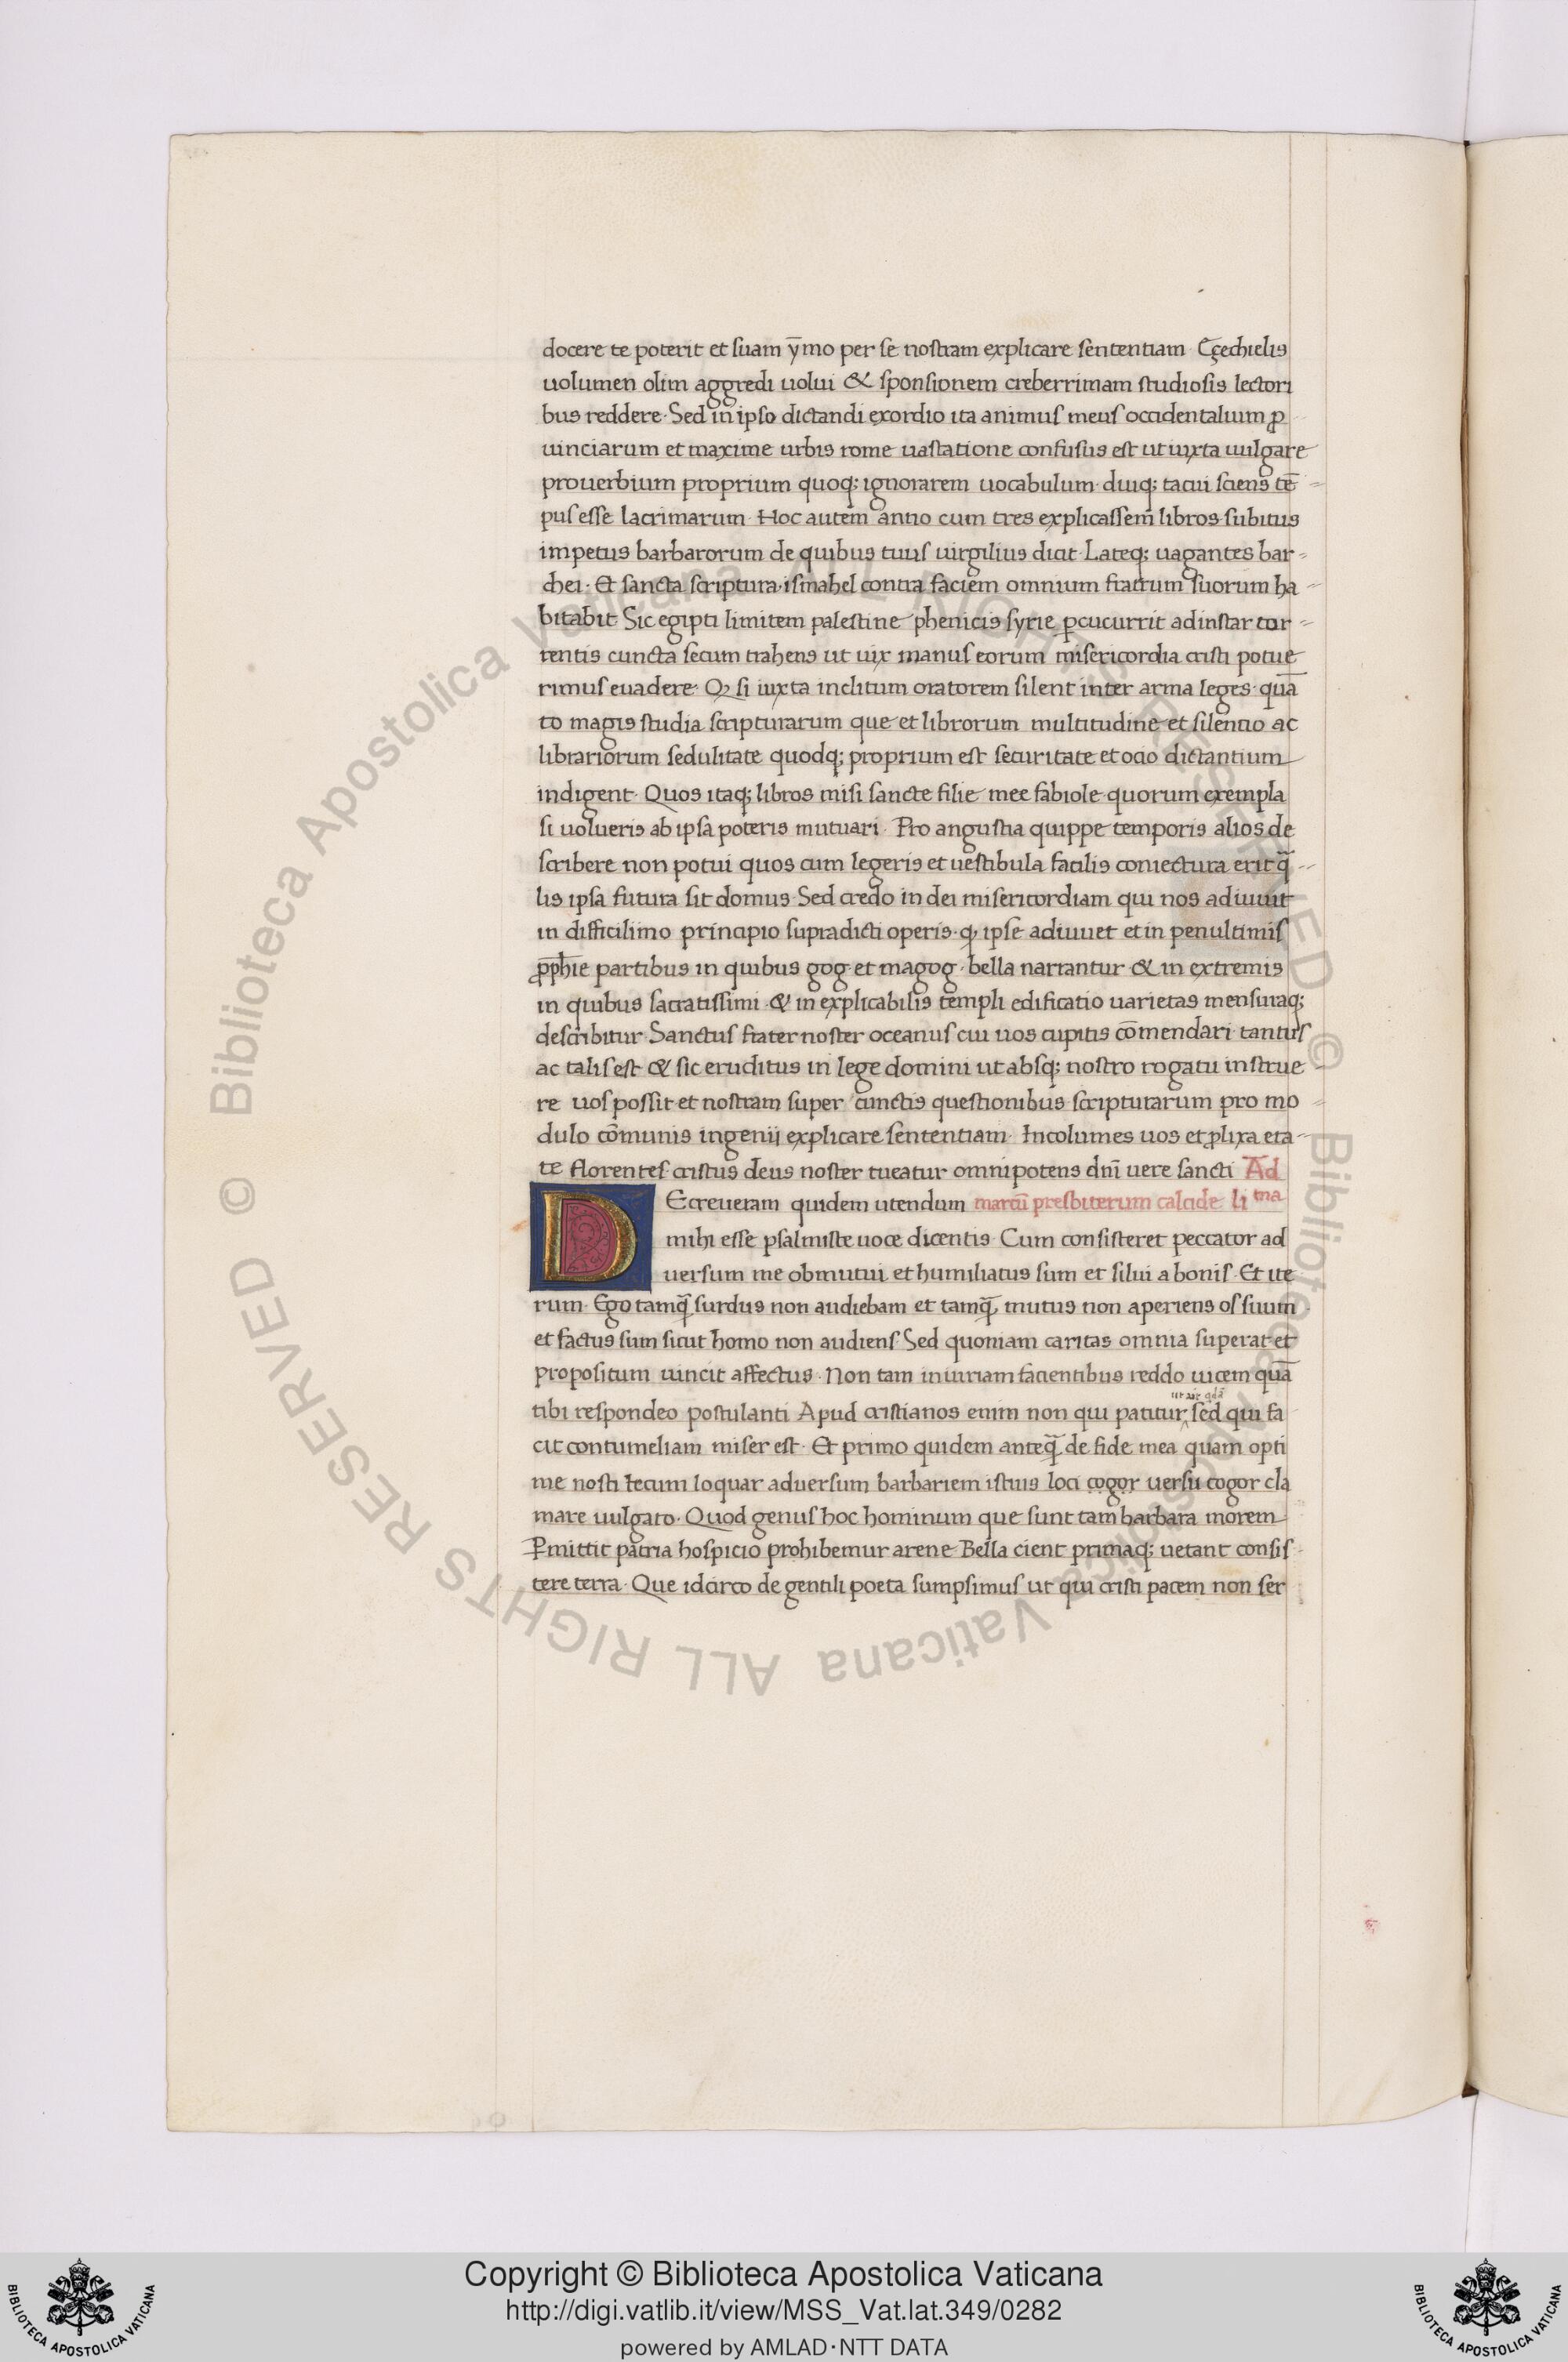 docere te poterit et suam ȳmo per se nostram explicare sententiam. Eçechielis
uolumen olim aggredi uolui & sponsionem creberrimam studiosis lectori
bus reddere. Sed in ipso dictandi exordio ita animus meus occidentalium ꝓ
uinciarum et maxime urbis rome uastatione confusus est ut iuxta uulgare
prouerbium proprium quoq; ignorarem uocabulum. diuq; tacui sciens tē
pus esse lacrimarum. Hoc autem anno cum tres explicassem libros subitus
impetus barbarorum de quibus tuus uirgilius dicit. Lateq; uagantes bar
chei. Et sancta scriptura. ismahel contra faciem omnium fratrum suorum ha
bitabit. Sic egipti limitem palestine phenicis syrie ꝑcucurrit ad instar tor
rentis cuncta secum trahens ut uix manus eorum misericordia cristi potue
rimus euadere. Qꝫ si iuxta inclitum oratorem silent inter arma leges. quā
to magis studia scripturarum que et librorum multitudine et silentio ac
librariorum sedulitate quodq; proprium est securitate et ocio dictantium
indigent. Quos itaq; libros misi sancte filie mee fabiole quorum exempla
si uolueris ab ipsa poteris mutuari. Pro angustia quippe temporis alios de
scribere non potui quos cum legeris et uestibula facilis coniectura erit q̄
lis ipsa futura sit domus. Sed credo in dei misericordiam qui nos adiuuit
in difficilimo principio supradicti operis. qꝫ ipse adiuuet et in penultimis
ꝓph̄ie partibus in quibus gog et magog. bella narrantur & in extremis
in quibus sacratissimi. & in explicabilis templi edificatio uarietas mensuraq;
describitur. Sanctus frater noster oceanus cui uos cupitis cōmendari. tantus
ac talis est & sic eruditus in lege domini ut absq; nostro rogatu instrue
re uos possit et nostram super cunctis questionibus scripturarum pro mo
dulo cōmunis ingenij explicare sententiam. Incolumes uos et ꝓlixa eta
te florentes cristus deus noster tueatur omnipotens dn̄i uere sancti Ad
DEcreueram quidem utendum marcū presbiterum calcide li ma
mihi esse psalmiste uoce dicentis. Cum consisteret peccator ad
uersum me obmutui et humiliatus sum et silui a bonis. Et ite
rum. Ego tamq̄ surdus non audiebam et tamq̄ mutus non aperiens os suum
et factus sum sicut homo non audiens. Sed quoniam caritas omnia superat et
propositum uincit affectus. Non tam iniuriam facientibus reddo uicem quā
ut ait qdā
tibi respondeo postulanti. Apud cristianos enim non qui patitur sed qui fa
cit contumeliam miser est. Et primo quidem anteq̄ de fide mea quam opti
me nosti tecum loquar aduersum barbariem istius loci cogor uersu cogor cla
mare uulgato. Quod genus hoc hominum que sunt tam barbara morem
Ꝑmittit patria hospicio prohibemur arene. Bella cient primaq; uetant consis
tere terra. Que idcirco de gentili poeta sumpsimus ut qui cristi pacem non ser
Copyright © Biblioteca Apostolica Vaticana
http://digi.vatlib.it/view/MSS_Vat.lat.349/0282
powered by AMLAD·NTT DATA
BIBLIOTECA APOSTOLICA VATICANA
BIBLIOTECA APOSTOLICA VATICANA
© Biblioteca Apostolica Vaticana ALL RIGHTS RESERVED © Biblioteca Apostolica Vaticana ALL RIGHTS RESERVED